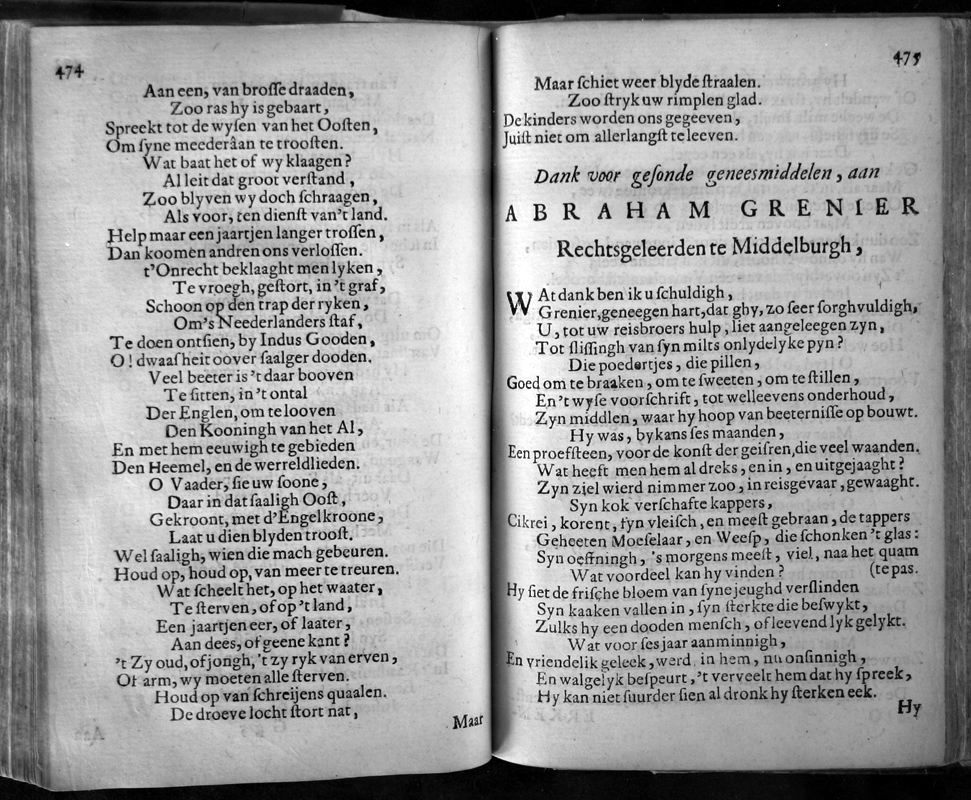 474
Aan een, van brosſe draaden,
Zoo ras hy is gebaart,
Spreekt tot de wyſen van het Ooſten,
Om ſyne meederâan te trooſten.
Wat baat het of wy klaagen?
Al leit dat groot verſtand,
Zoo blyven wy doch ſchraagen,
Als voor, ten dienſt van't land.
Help maar een jaartjen langer troſſen,
Dan koomen andren ons verloſſen.
t'Onrecht beklaaght men lyken,
Te vroegh, geſtort, in 't graf,
Schoon op den trap der ryken,
Om's Neederlanders ſtaf,
Te doen ontſien, by Indus Gooden,
O! dwaaſheit oover ſaalger dooden.
Veel beeter is 't daar booven
Te ſitten, in 't ontal
Der Englen, om te looven
Den Kooningh van het Al,
En met hem eeuwigh te gebieden
Den Heemel, en de werreldlieden.
O Vaader, ſie uw ſoone,
Daar in dat ſaaligh Ooſt,
Gekroont, met d'Engelkroone,
Laat u dien blyden trooſt.
Wel ſaaligh, wien die mach gebeuren.
Houd op, houd op, van meer te treuren.
Wat ſcheelt het, op het waater,
Te ſterven, of op 't land,
Een jaartjen eer, of laater,
Aan dees, of geene kant?
't Zy oud, of jongh, 't zy ryk van erven,
Of arm, wy moeten alle ſterven.
Houd op van ſchreijens quaalen.
De droeve locht ſtort nat,
Maar
475
Maar ſchiet weer blyde ſtraalen.
Zoo ſtryk uw rimplen glad.
De kinders worden ons gegeeven,
Juiſt niet om allerlangſt te leeven.
Dank voor geſonde geneesmiddelen, aan
ABRAHAM GRENIER
Rechtsgeleerden te Middelburgh,
WAt dank ben ik u ſchuldigh,
Grenier, geneegen hart, dat ghy, zo ſeer ſorghvuldigh,
U, tot uw reisbroers hulp, liet aangeleegen zyn,
Tot ſliſſingh van ſyn milts onlydelyke pyn?
Die poedertjes, die pillen,
Goed om te braaken, om te ſweeten, om te ſtillen,
En 't wyſe voorſchrift, tot welleevens onderhoud,
Zyn middlen, waar hy hoop van beeterniſſe op bouwt.
Hy was, by kans ſes maanden,
Een proefſteen, voor de konſt der geiſren, die veel waanden.
Wat heeft men hem al dreks, en in, en uitgejaaght?
Zyn ziel wierd nimmer zoo, in reisgevaar, gewaaght.
Syn kok verſchafte kappers,
Cikrei, korent, ſyn vleiſch, en meeſt gebraan, de tappers
Geheeten Moeſelaar, en Weeſp, die ſchonken 't glas:
Syn oeffningh, 's morgens meeſt, viel, naa het quam
Wat voordeel kan hy vinden? (te pas.
Hy ſiet de friſche bloem van ſyne jeughd verſlinden
Syn kaaken vallen in, ſyn ſterkte die beſwykt,
Zulks hy een dooden menſch, of leevend lyk gelykt.
Wat voor ſes jaar aanminnigh,
En vriendelik geleek, werd in hem, nu onſinnigh,
En walgelyk beſpeurt, 't verveelt hem dat hy ſpreek,
Hy kan niet ſuurder ſien al dronk hy ſterken eek.
Hy